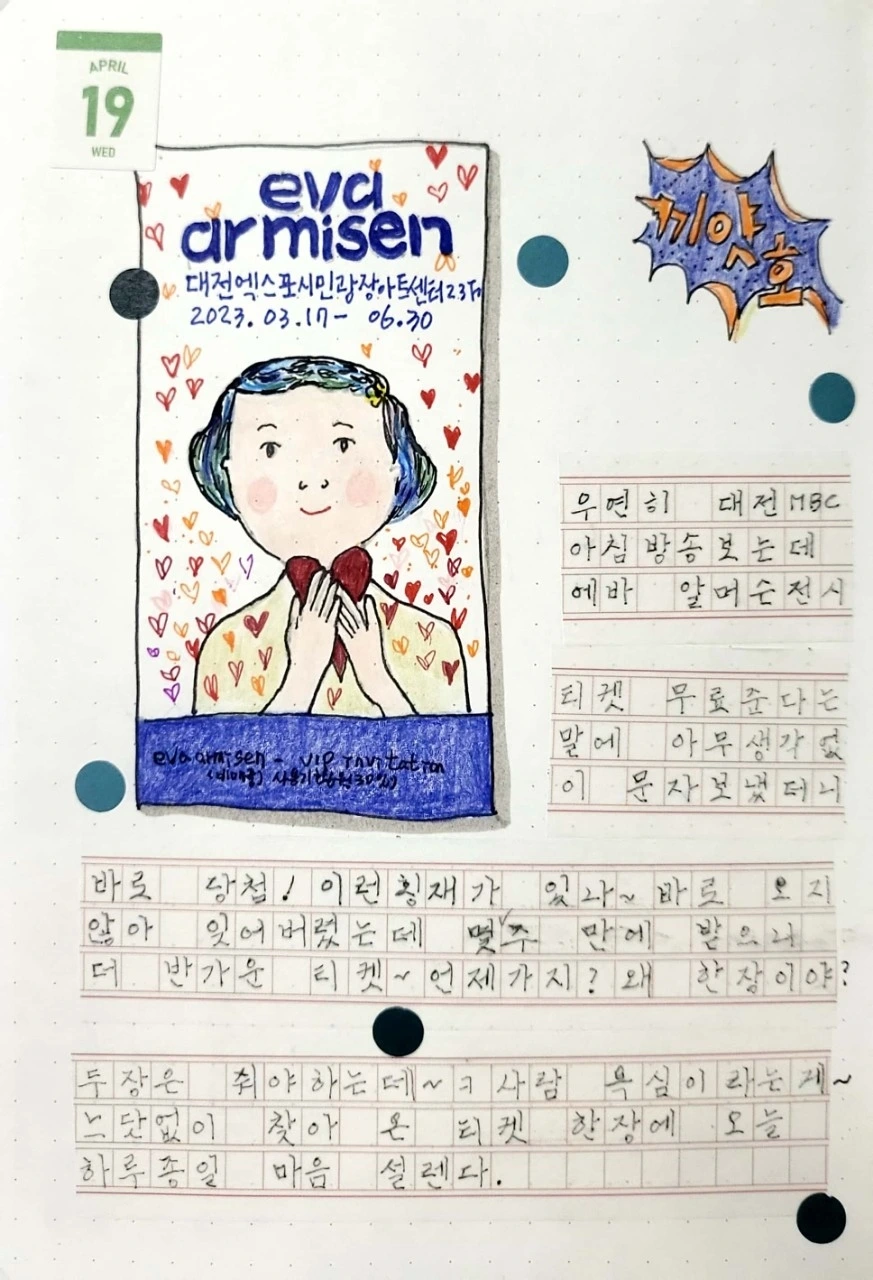 APRIL
19
WED
eva
armisen
대전엑스포시민광장아트센터2.3전시
2023.03.17- 06.30
끼얏호
eva armisen - VIP invitation
우연히 대전 MBC
아침 방송 보는데
에바 알머슨전시
티켓 무료준다는
말에 아무생각 없
이 문자보냈더니
바로 당첨! 이런 횡재가 있나~ 바로 오지
않아 잊어버렸는데 몇주 만에 받으니
더 반가운 티켓~ 언제가지? 왜 한장이야?
두장은 줘야하는데~ ㅋ 사람 욕심이라는게~
느닷없이 찾아 온 티켓 한장에 오늘
하루종일 마음 설렌다.